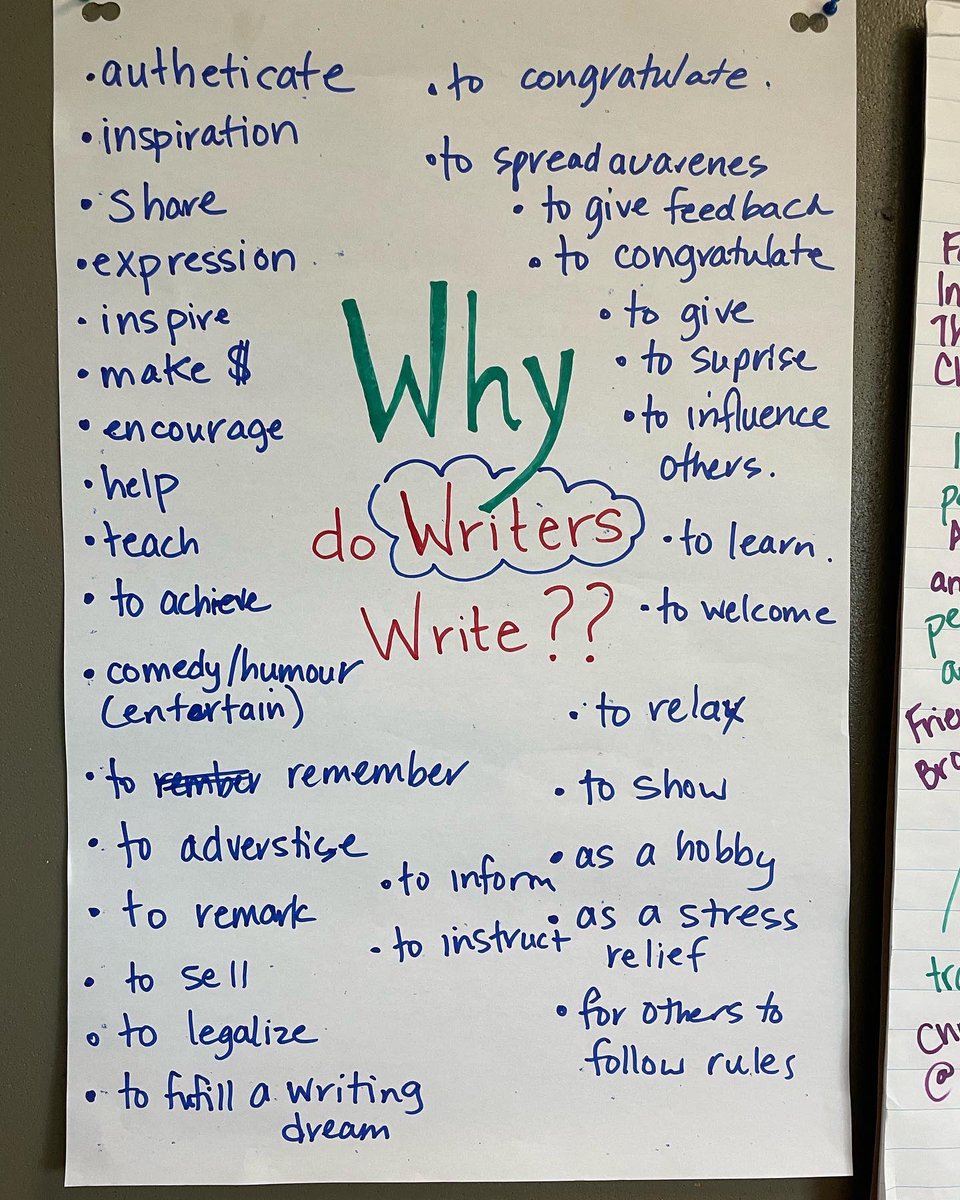 •autheticate
•inspiration
•share
•expression
•inspire
•make $
•encourage
•help
•teach
•to achieve
•comedy/humour
(entertain)
•to rember remember
•to adverstise
•to remark
•to sell
•to legalize
•to fufill a writing
dream
Why
do Writers
Write??
•to inform
•to instruct
•to congratulate.
•to spread awarenes
•to give feedback
•to congratulate
•to give
•to suprise
•to influence
others.
•to learn.
•to welcome
•to relax
•to show
•as a hobby
•as a stress
relief
•for others to
follow rules
In
an
Frie
Bro
@